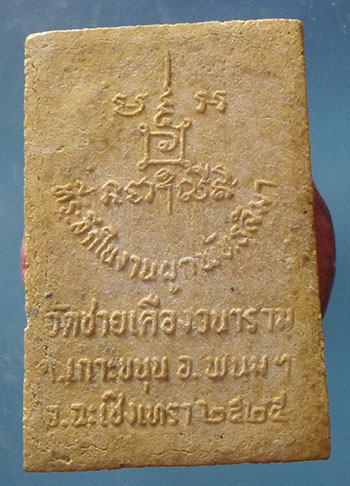 ที่ระลึกในงานผูกพัทธสีมา
วัดชายเคืองวนาราม
ต.เกาะขนุน อ.พนมฯ
จ.ฉะเชิงเทรา ๒๕๒๕